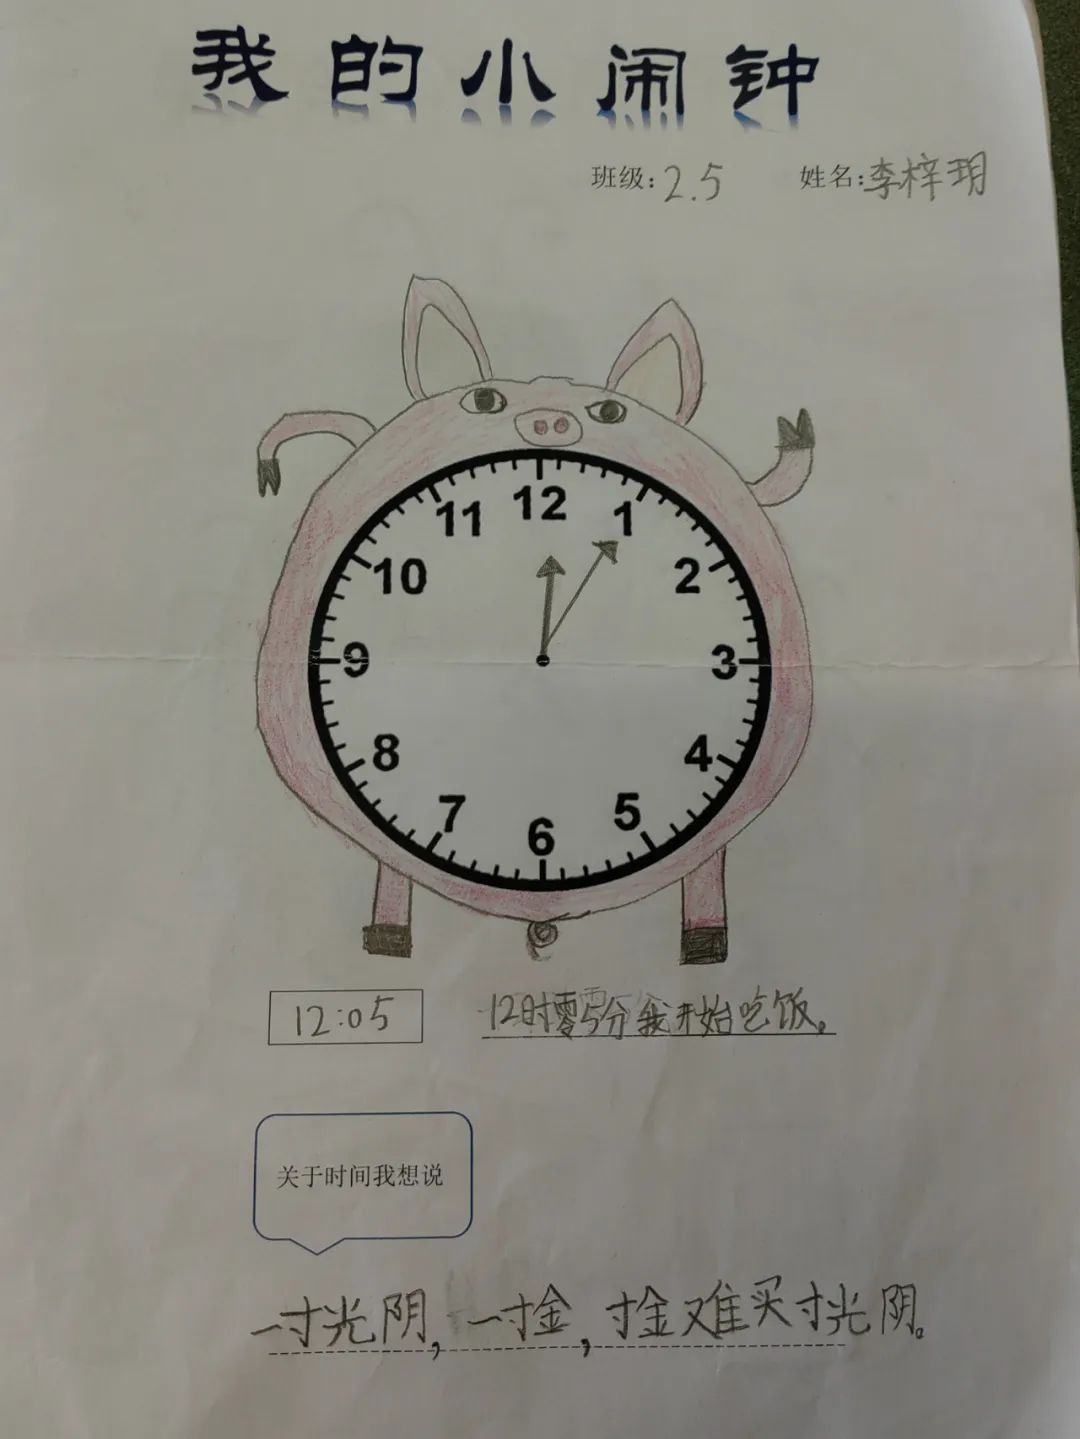 我的小闹钟
班级：2.5 姓名：李梓玥
12
11 1
10 2
9 3
8 4
7 5
6
12:05 12时零5分我开始吃饭。
关于时间我想说
一寸光阴，一寸金，寸金难买寸光阴。